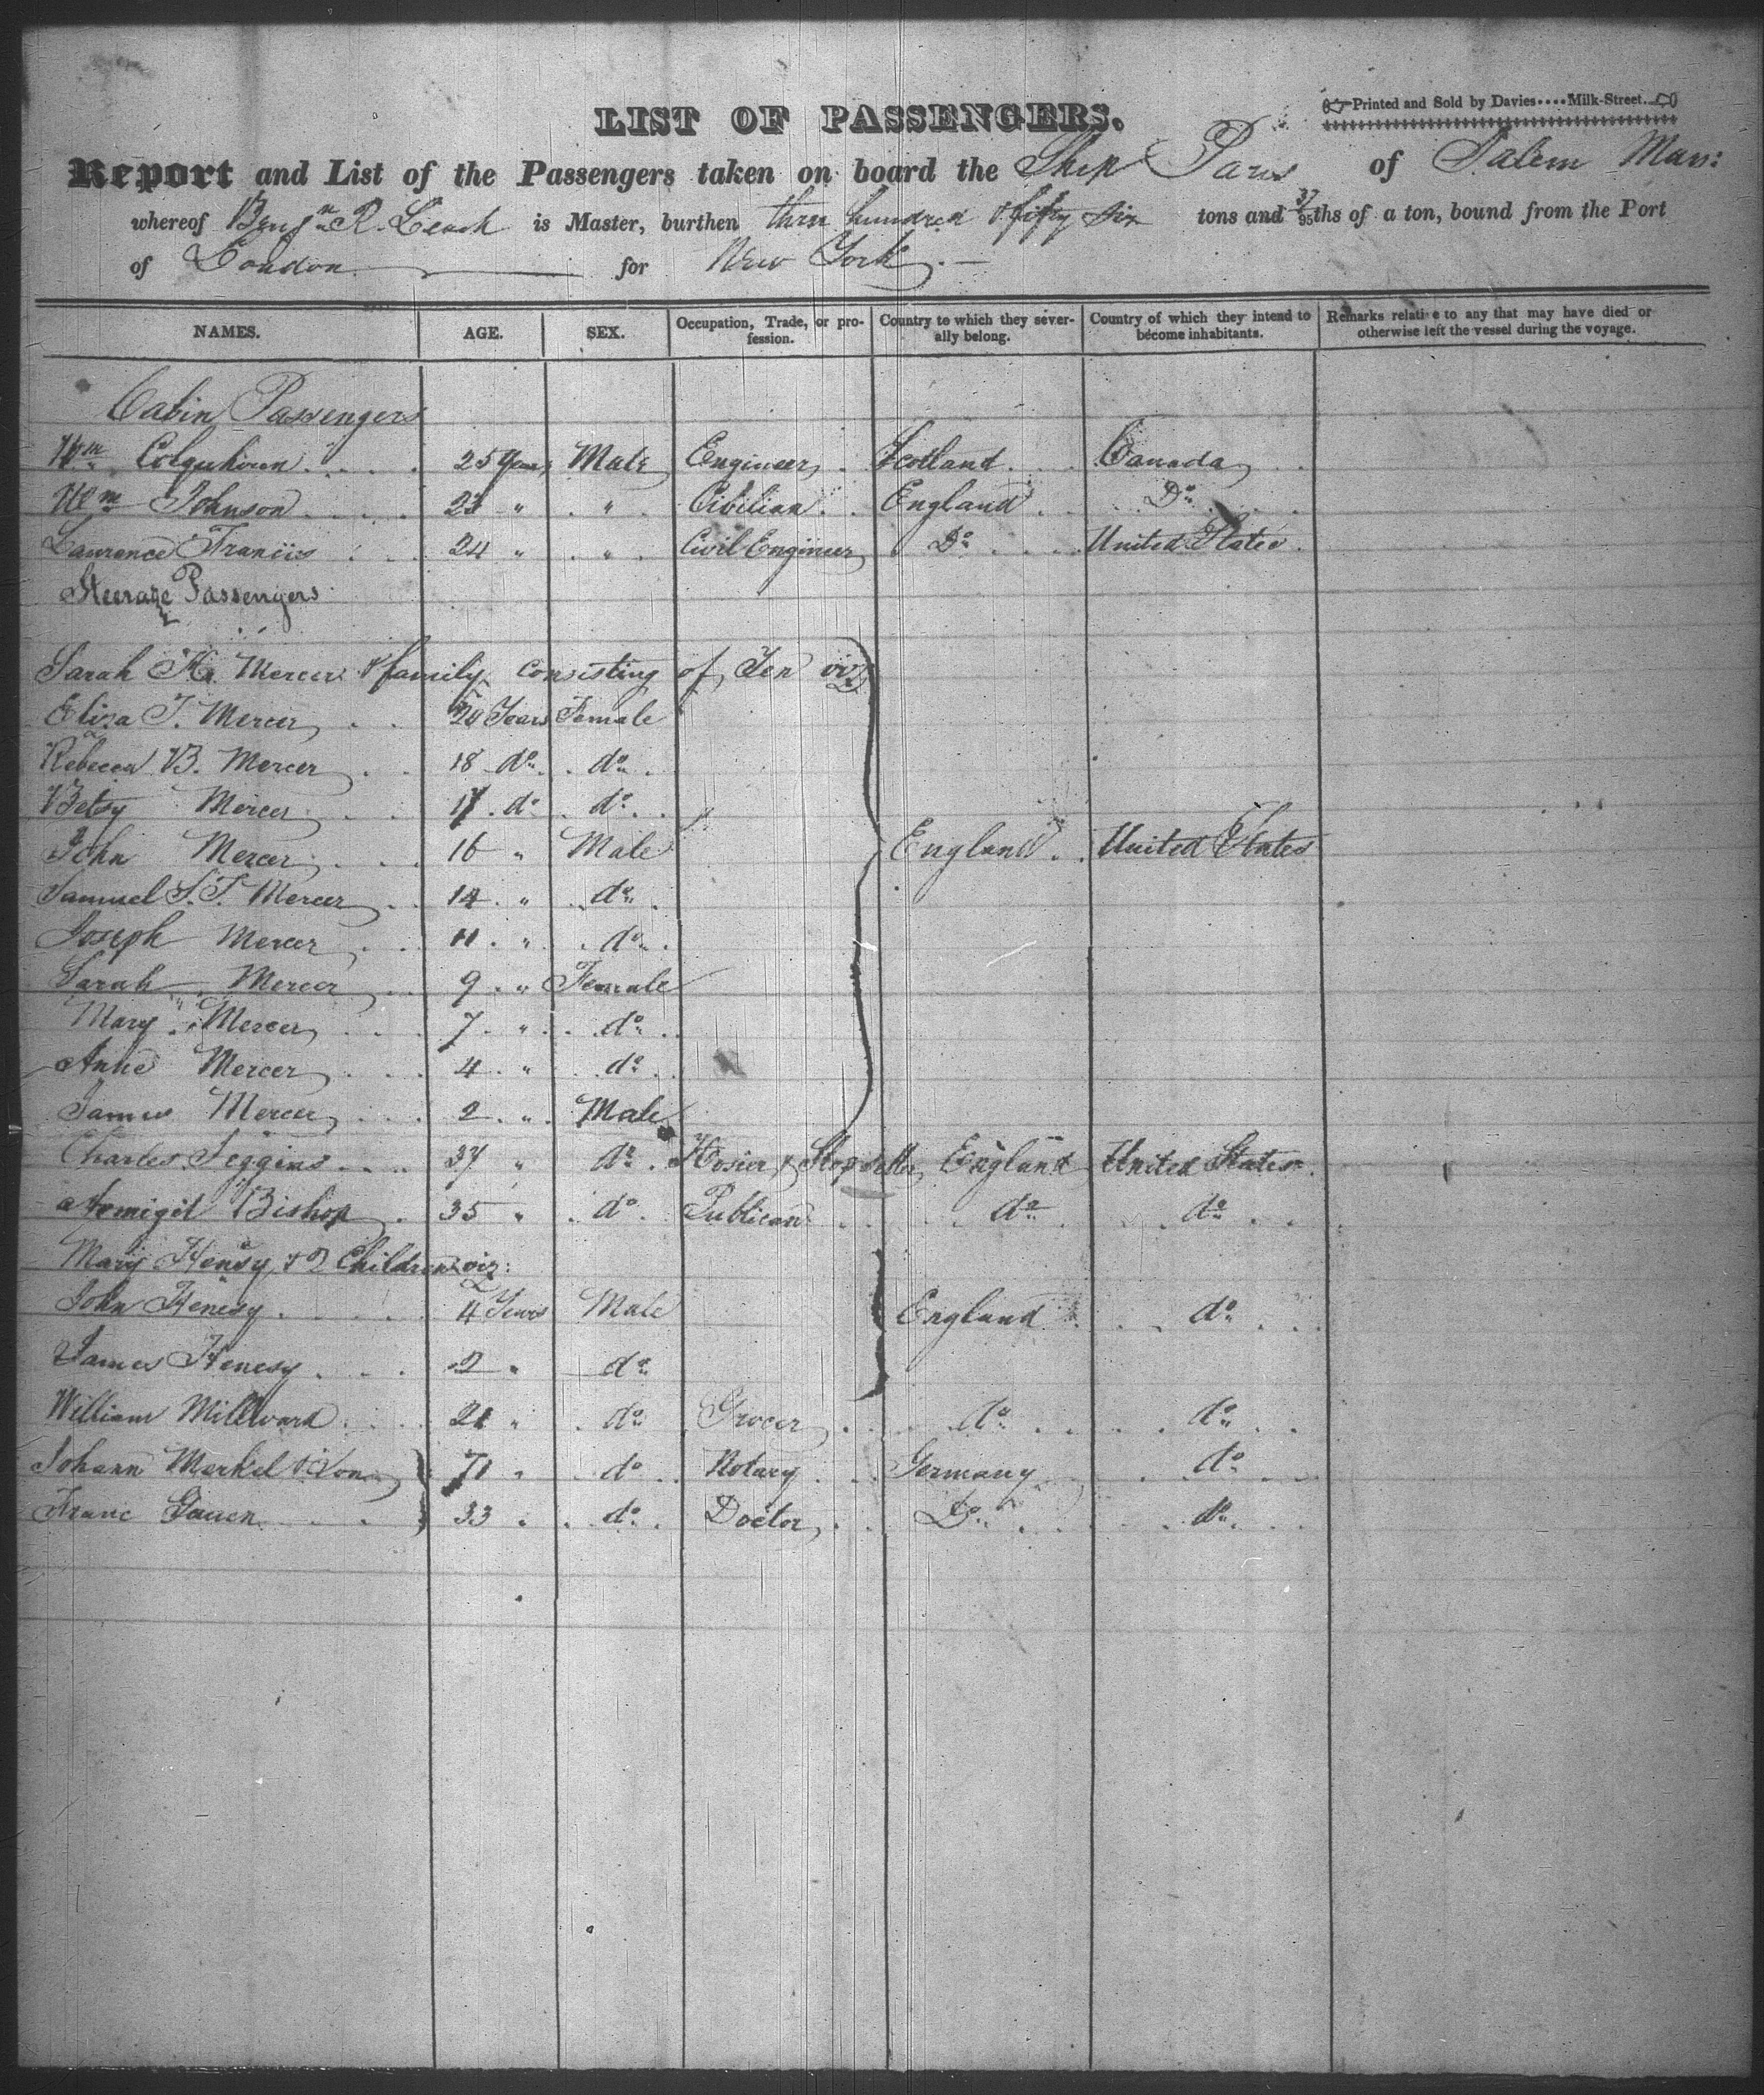 Printed and Sold by Davies....Milk-Street.
LIST OF PASSENGERS.
Report and List of the Passengers taken on board the Ship Paris of Salem Mass:
whereof Benjn R. Leach is Master, burthen three hundred & fifty six tons and 37/95ths of a ton, bound from the Port
of London for New York.
NAMES. AGE. SEX. Occupation, Trade, or profession. Country to which they severally belong. Country of which they intend to become inhabitants. Remarks relative to any that may have died or otherwise left the vessel during the voyage.
Cabin Passengers
Wm Colquhoun 25 Years Male Engineer Scotland Canada
Wm Johnson 23 " " Civilian England Do
Laurance Franciis 24 " " Civil Engineer Do United States
Steerage Passengers
Sarah H. Mercer & family consisting of Ten viz
Eliza T. Mercer 20 Years Female
Rebecca B. Mercer 18 do do
Betsy Mercer 17 do do
John Mercer 16 " Male England United States
Samuel S. T. Mercer 14 " do
Joseph Mercer 11 " do
Sarah Mercer 9 " Female
Mary Mercer 7 " do
Anne Mercer 4 " do
James Mercer 2 " Male
Charles Jeggins 37 " do Hosier & Slop seller England United States
Bishop 35 " do Publican do do
Mary Henesy & 2 Children viz:
John Henesy 4 Years Male England do
James Henesy 2 " do
William Millward 21 " do Grocer do do
Johann Merkel & Son 71 " do Notary Germany do
Franc 33 " do Doctor Do do